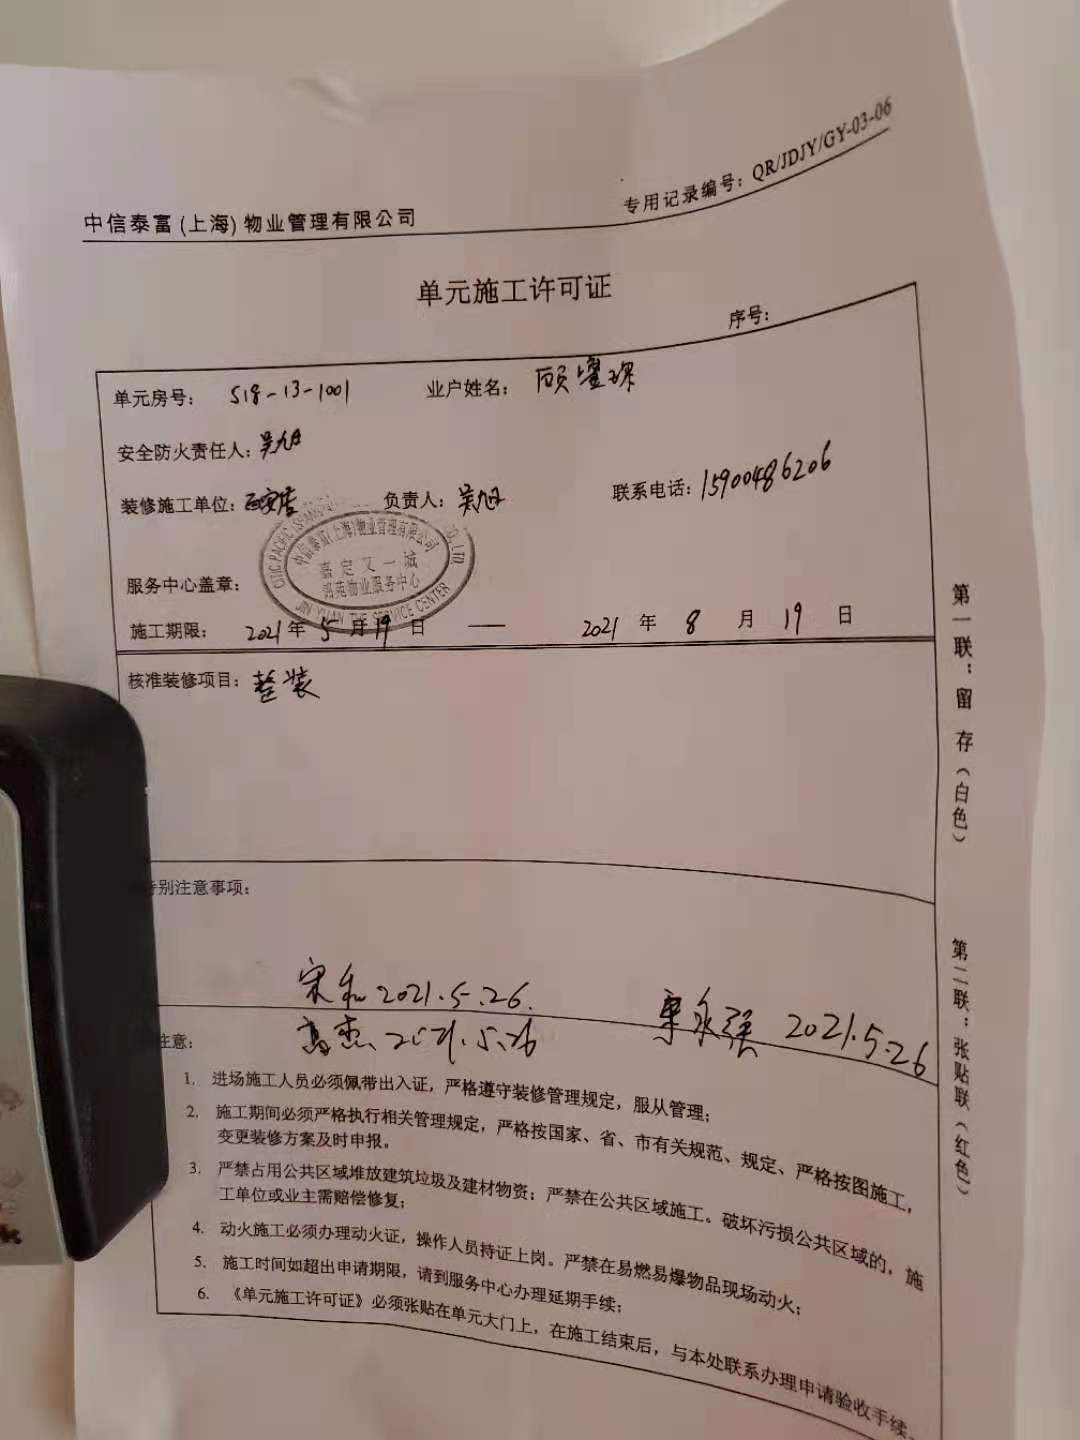 专用记录编号：QR/JDJY/GY-03-06
中信泰富(上海)物业管理有限公司
单元施工许可证
序号：
单元房号： 518-13-1001 业户姓名： 顾
安全防火责任人：吴旭
装修施工单位： 负责人：吴旭 联系电话：15900486206
CITIC PACIFIC CO., LTD.
中信泰富(上海)物业管理有限公司
嘉定又一城
物业服务中心
JIN YUAN THE SERVICE CENTER
服务中心盖章：
施工期限： 2021 年 5 月 19 日 —— 2021 年 8 月 19 日
核准装修项目：整装
别注意事项：
宋 2021.5.26.
高杰 2021.5.26
永强 2021.5.26
注意：
1. 进场施工人员必须佩带出入证，严格遵守装修管理规定，服从管理；
2. 施工期间必须严格执行相关管理规定，严格按国家、省、市有关规范、规定、严格按图施工，
变更装修方案及时申报。
3. 严禁占用公共区域堆放建筑垃圾及建材物资；严禁在公共区域施工。破坏污损公共区域的，施
工单位或业主需赔偿修复；
4. 动火施工必须办理动火证，操作人员持证上岗。严禁在易燃易爆物品现场动火；
5. 施工时间如超出申请期限，请到服务中心办理延期手续；
6. 《单元施工许可证》必须张贴在单元大门上，在施工结束后，与本处联系办理申请验收手续。
第一联：留存（白色）
第二联：张贴联（红色）